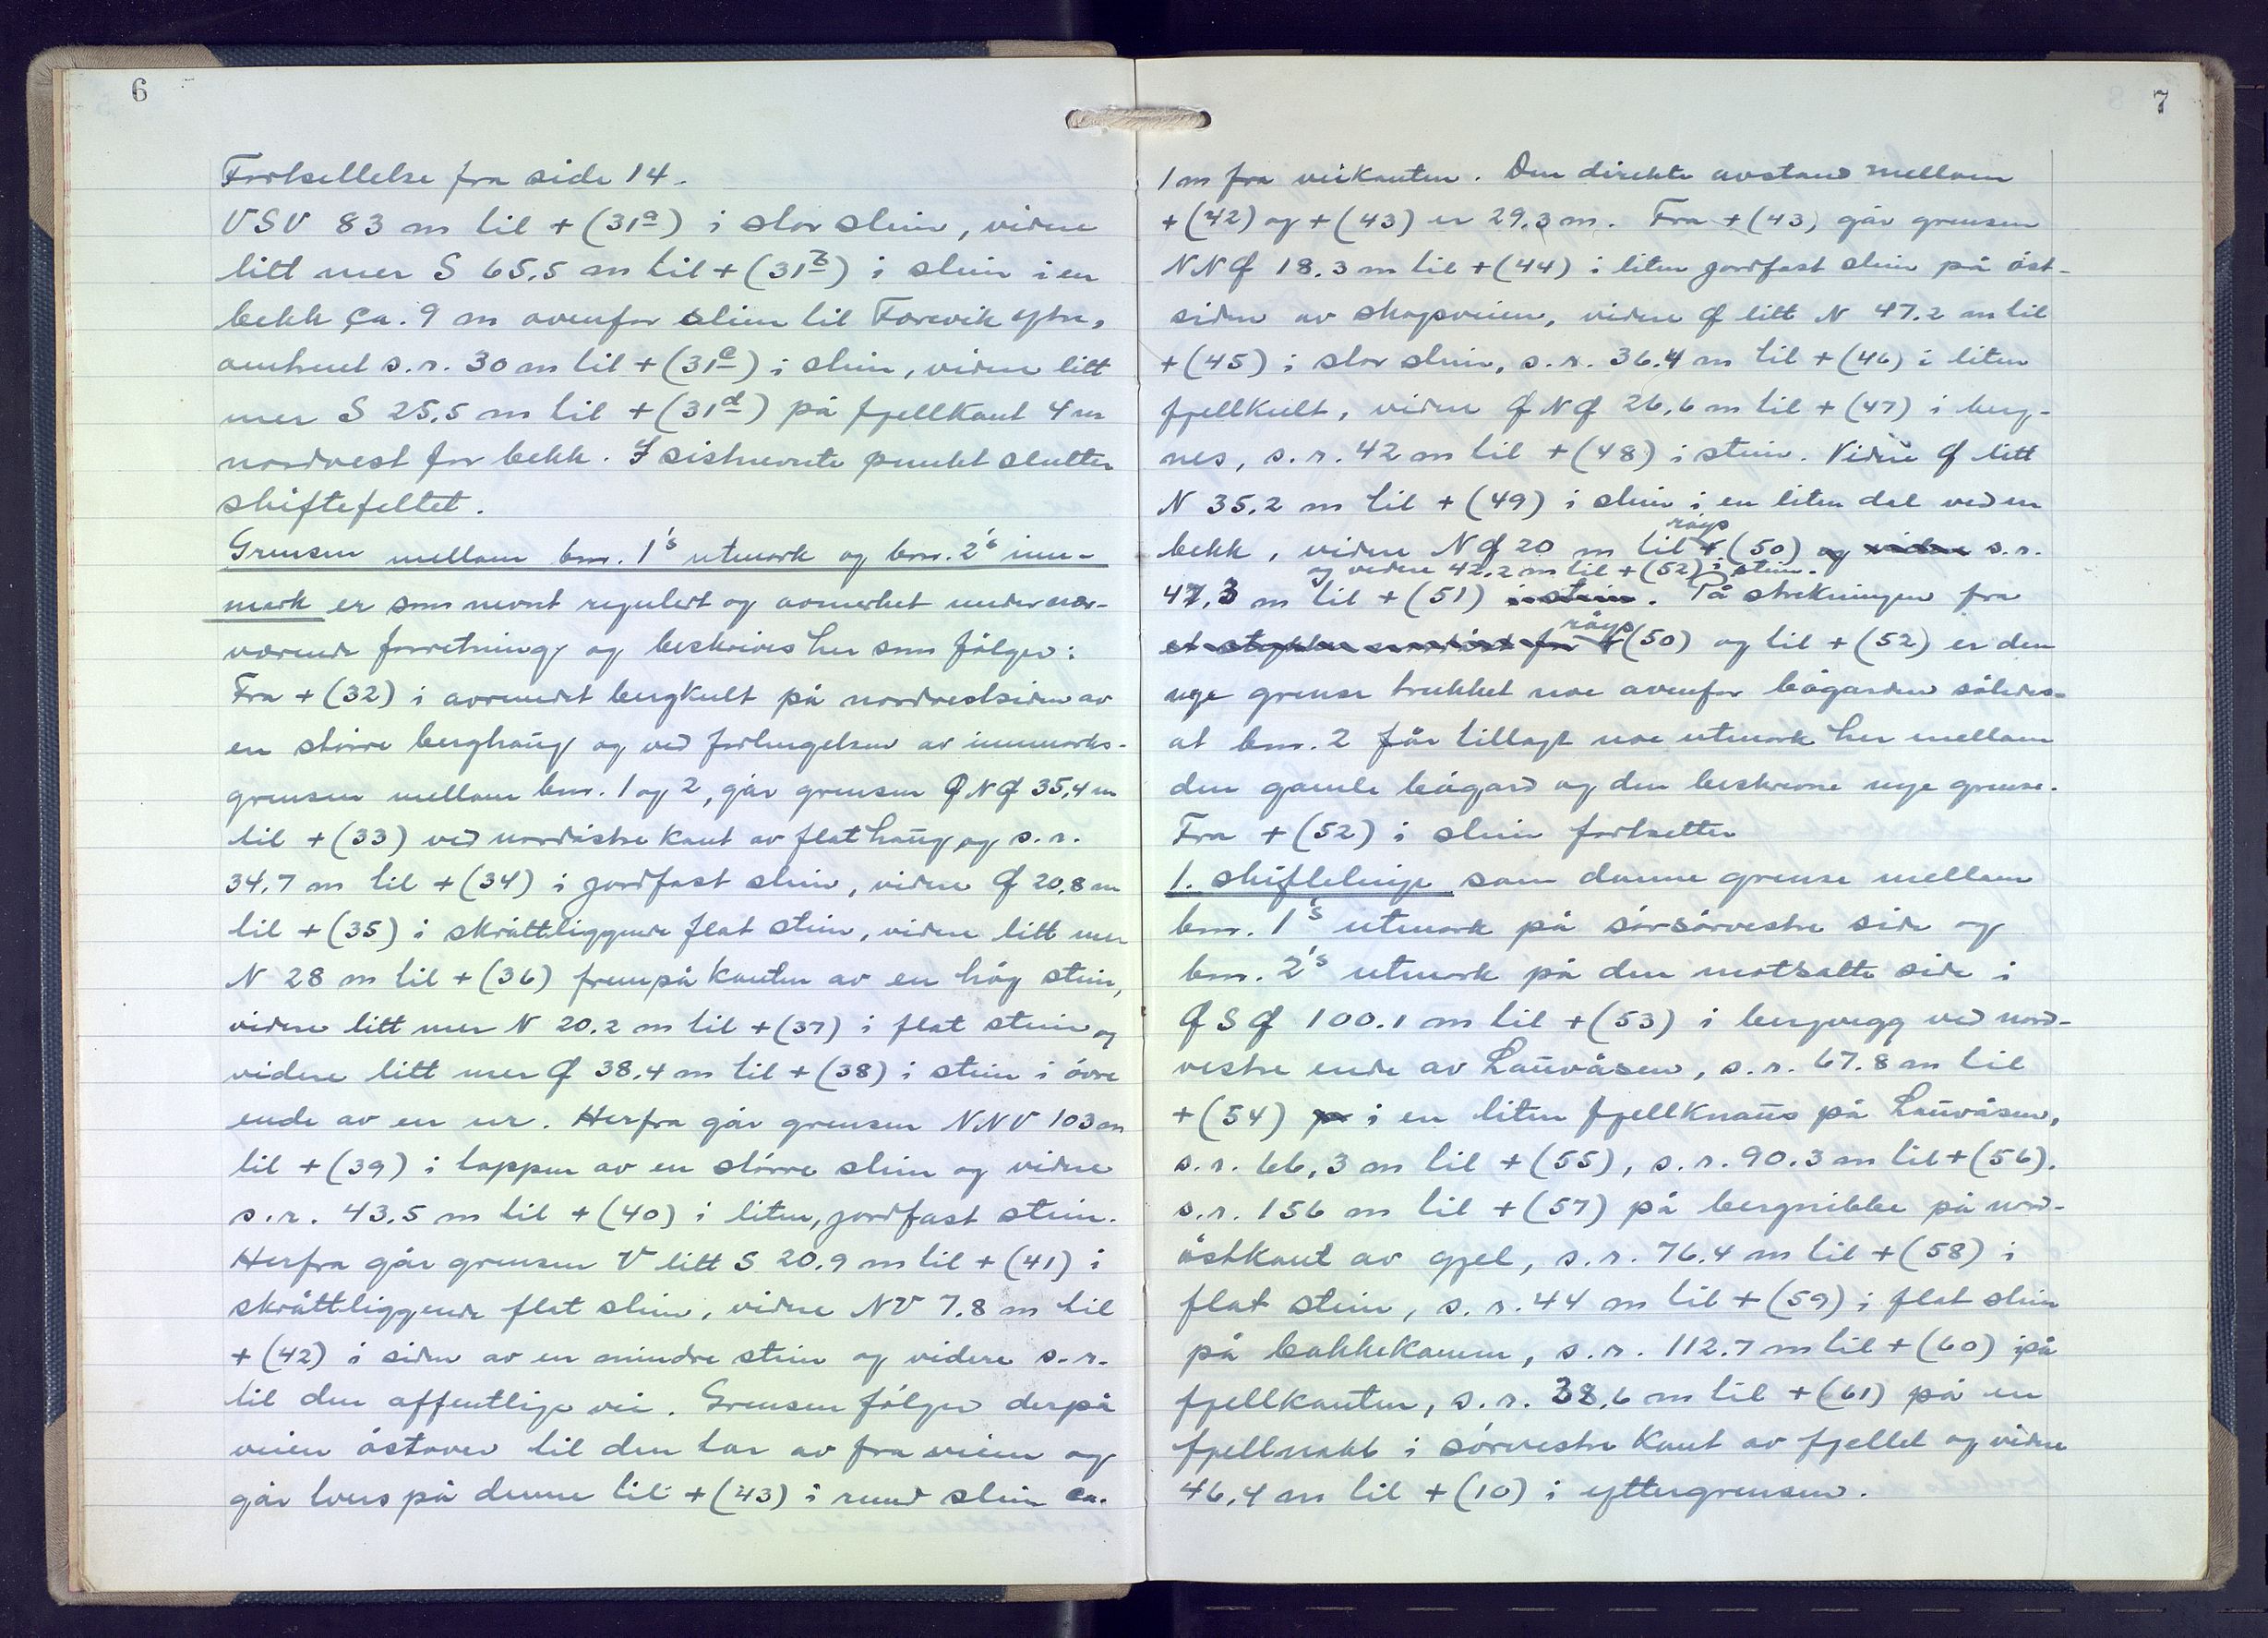 6
Fortsettelse fra side 14.
VSV 83 m til + (31a) i stor stein, videre
litt mer S 65,5 m til + (31b) i stein i en
bekk ca. 9 m ovenfor stien til Farevik ytre,
omtrent s.r. 30 m til + (31c) i stein, videre litt
mer S 25,5 m til + (31d) på fjellkant 4 m
nordvest for bekk. I sistnevnte punkt slutter
skiftefeltet.
Grensen mellom bnr. 1's utmark og bnr. 2's inn-
mark er som nevnt regulert og avmerket under nær-
værende forretning og beskrives her som følger:
Fra + (32) i avrundet bergkult på nordvestsiden av
en større berghaug og ved forlengelsen av innmarks-
grensen mellom bnr. 1 og 2, går grensen ØNØ 35,4 m
til + (33) ved nordøstre kant av flat haug og s.r.
34,7 m til + (34) i jordfast stein, videre Ø 20,8 m
til + (35) i skråttliggende flat stein, videre litt mer
N 28 m til + (36) frempå kanten av en høg stein,
videre litt mer N 20.2 m til + (37) i flat stein og
videre litt mer Ø 38,4 m til + (38) i stein i øvre
ende av en ur. Herfra går grensen NNV 103 m
til + (39) i toppen av en større stein og videre
s.r. 43,5 m til + (40) i liten, jordfast stein.
Herfra går grensen V litt S 20.9 m til + (41) i
skråttliggende flat stein, videre NV 7.8 m til
+ (42) i siden av en mindre stein og videre s.r.
til den offentlige vei. Grensen følger derpå
veien østover til den tar av fra veien og
går tvers på denne til + (43) i rund stein ca.
7
1 m fra veikanten. Den direkte avstand mellom
+ (42) og + (43) er 29,3 m. Fra + (43) går grensen
NNØ 18.3 m til + (44) i liten jordfast stein på øst-
siden av skogsveien, videre Ø litt N 47.2 m til
+ (45) i stor stein, s.r. 36.4 m til + (46) i liten
fjellkult, videre ØNØ 26,6 m til + (47) i berg-
nes, s.r. 42 m til + (48) i stein. Videre Ø litt
N 35.2 m til + (49) i stein i en liten dal ved en
røys
bekk, videre NØ 20 m til + (50) og videre s.r.
og videre 42.2 m til + (52) i stein.
47,3 m til + (51) i stein. På strekningen fra
røys
et stykke nordøst for + (50) og til + (52) er den
nye grense trukket noe ovenfor bøgarden således
at bnr. 2 får tillagt noe utmark her mellom
den gamle bøgard og den beskrevne nye grense.
Fra + (52) i stein fortsetter
1. skiftelinje som danner grense mellom
bnr. 1's utmark på sørsørvestre side og
bnr. 2's utmark på den motsatte side i
ØSØ 100.1 m til + (53) i bergvegg ved nord-
vestre ende av Lauvåsen, s.r. 67.8 m til
+ (54) på i en liten fjellknaus på Lauvåsen,
s.r. 66,3 m til + (55), s.r. 90.3 m til + (56).
s.r. 156 m til + (57) på bergnibbe på nord-
østkant av gjel, s.r. 76.4 m til + (58) i
flat stein, s.r. 44 m til + (59) i flat stein
på bakkekammen, s.r. 112.7 m til + (60) på
fjellkanten, s.r. 38,6 m til + (61) på en
fjellnabb i sørvestre kant av fjellet og videre
46,4 m til + (10) i yttergrensen.